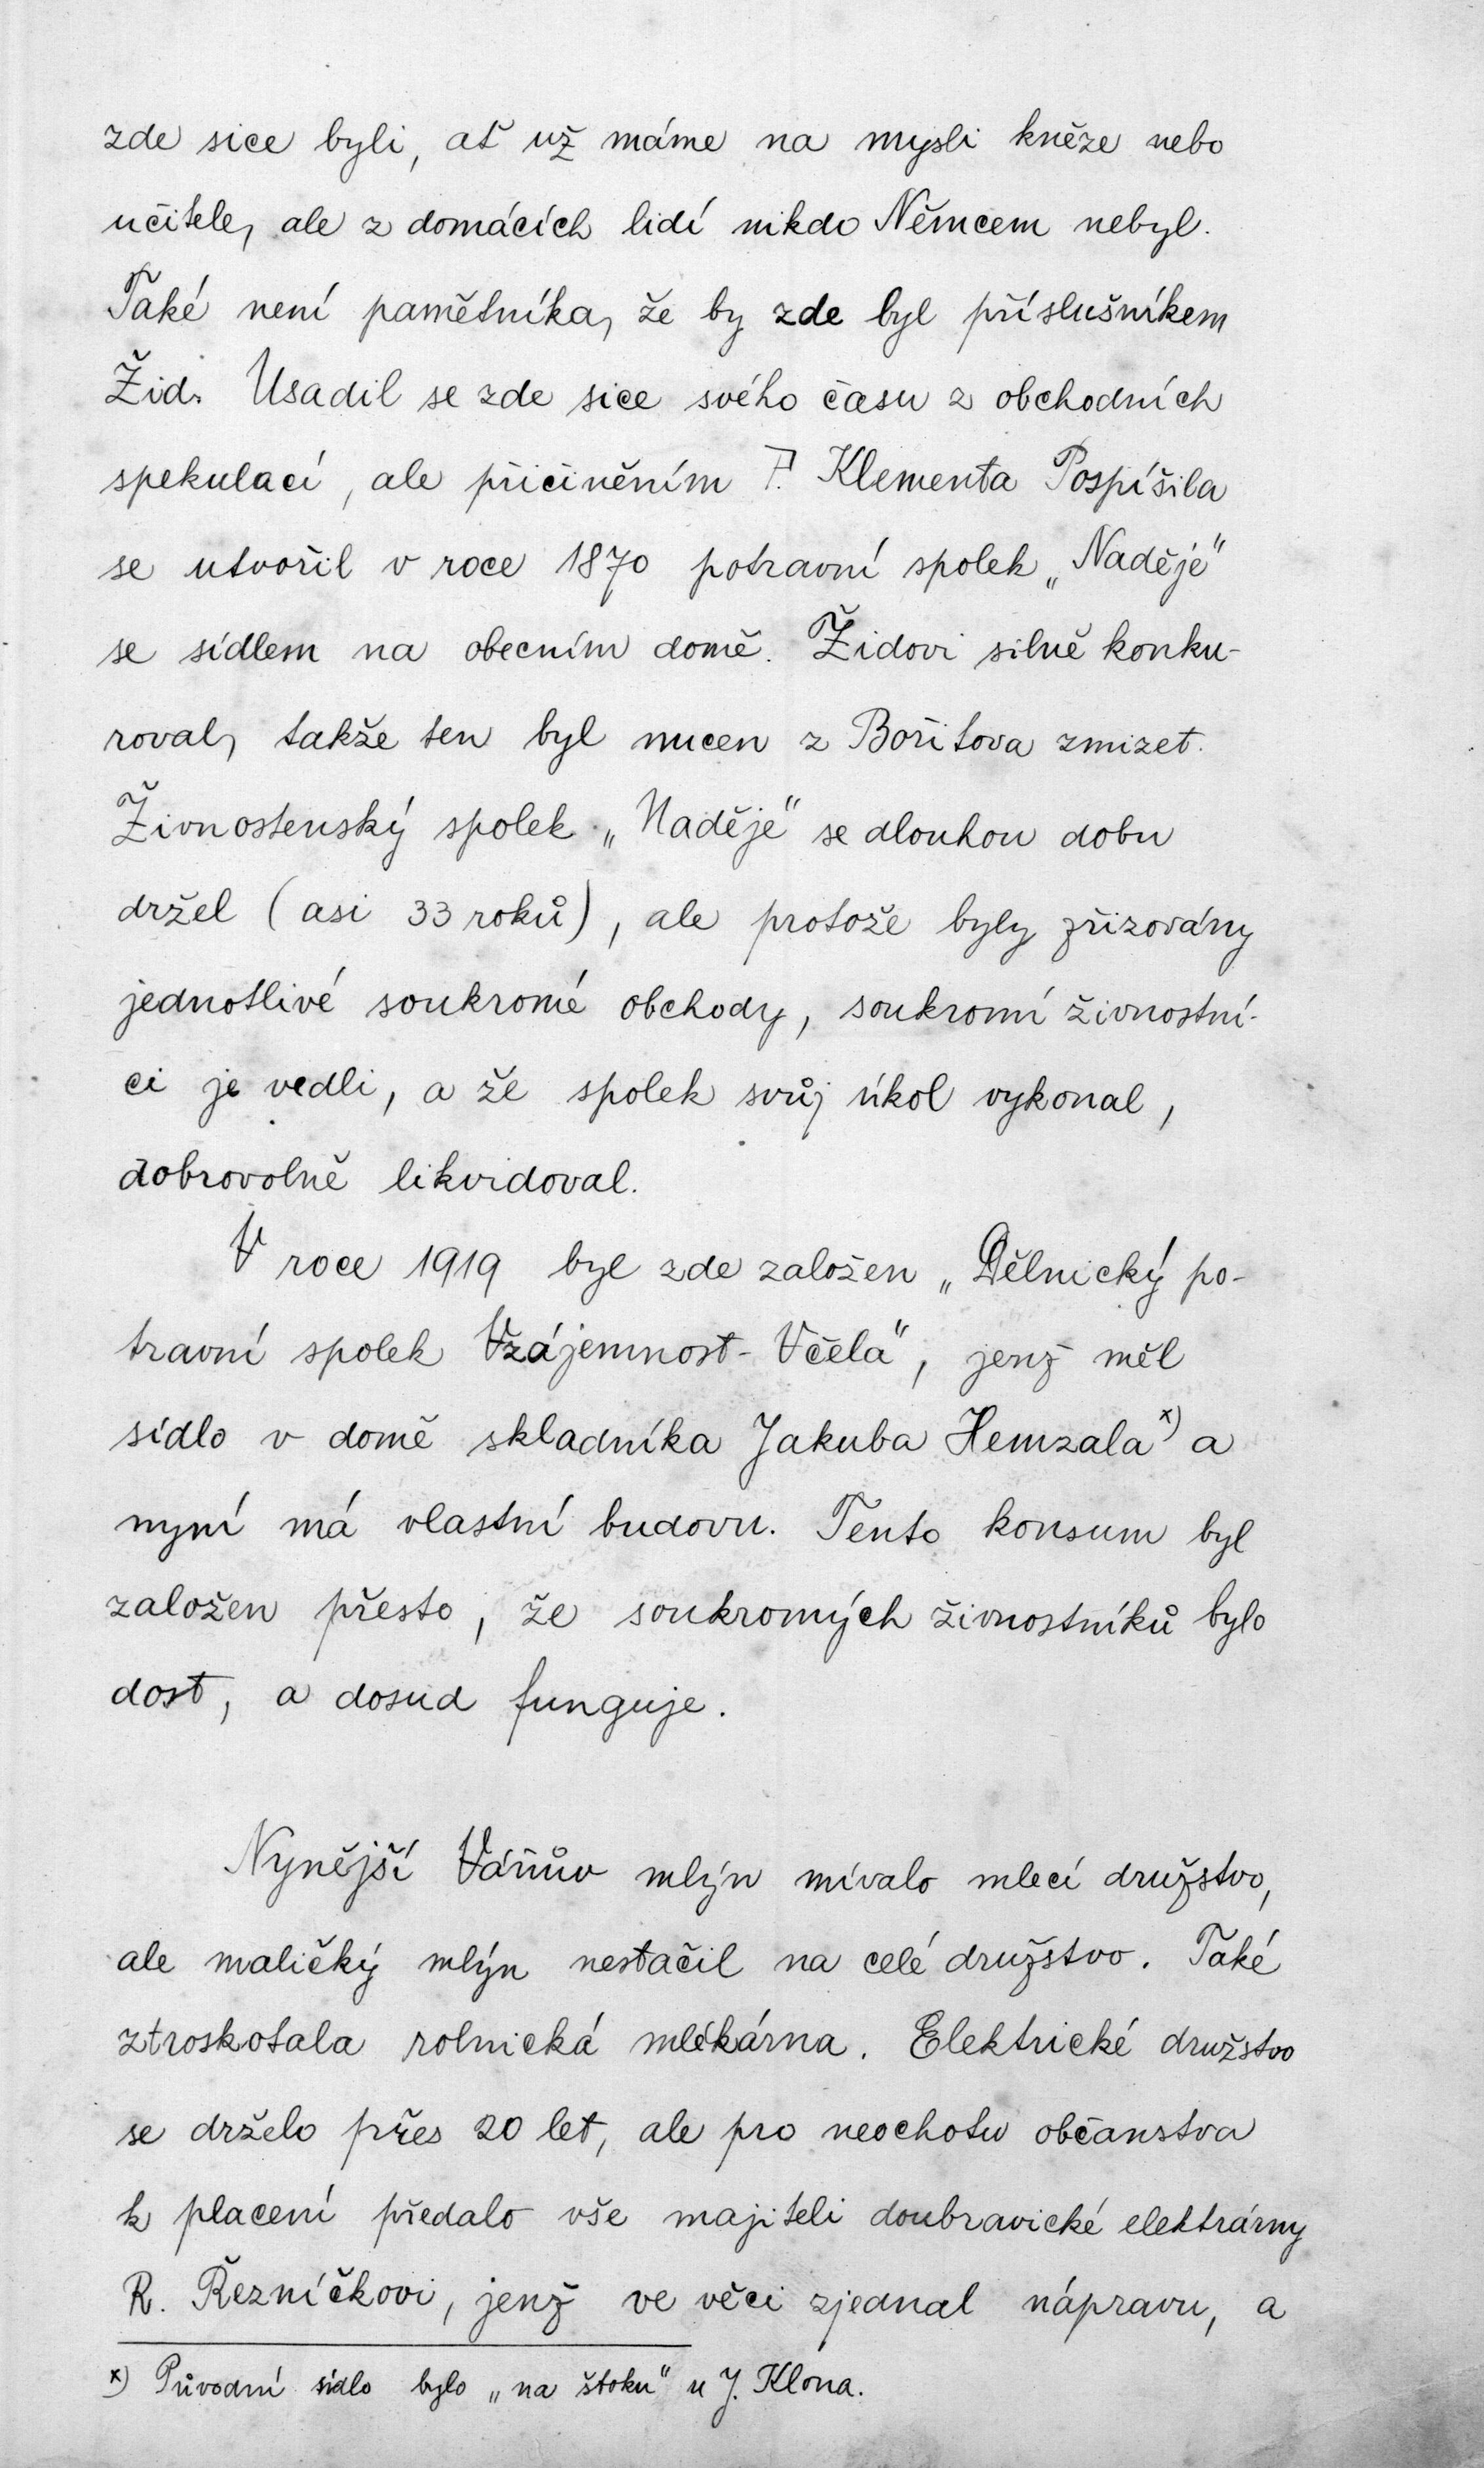 zde sice byli, ať už máme na mysli kněze nebo
učitele, ale z domácích lidí nikdo Němcem nebyl.
Také není pamětníka, že by zde byl příslušníkem
Žid. Usadil se zde sice svého času z obchodních
spekulací, ale přičiněním P. Klementa Pospíšila
se utvořil v roce 1870 potravní spolek „Naděje"
se sídlem na obecním domě. Židovi silně konku-
roval, takže ten byl nucen z Bořitova zmizet.
Živnostenský spolek „Naděje" se dlouhou dobu
držel (asi 33 roků), ale protože byly zřizovány
jednotlivé soukromé obchody, soukromí živnostní-
ci je vedli, a že spolek svůj úkol vykonal,
dobrovolně likvidoval.
V roce 1919 byl zde založen „Dělnický po-
travní spolek Vzájemnost-Včela", jenž měl
sídlo v domě skladníka Jakuba Hemzala x) a
nyní má vlastní budovu. Tento konsum byl
založen přesto, že soukromých živnostníků bylo
dost, a dosud funguje.
Nynější Váňův mlýn mívalo mlecí družstvo,
ale maličký mlýn nestačil na celé družstvo. Také
ztroskotala rolnická mlékárna. Elektrické družstvo
se drželo přes 20 let, ale pro neochotu občanstva
k placení předalo vše majiteli doubravické elektrárny
R. Řezníčkovi, jenž ve věci zjednal nápravu, a
x) Původní sídlo bylo „na štoku" u J. Klona.